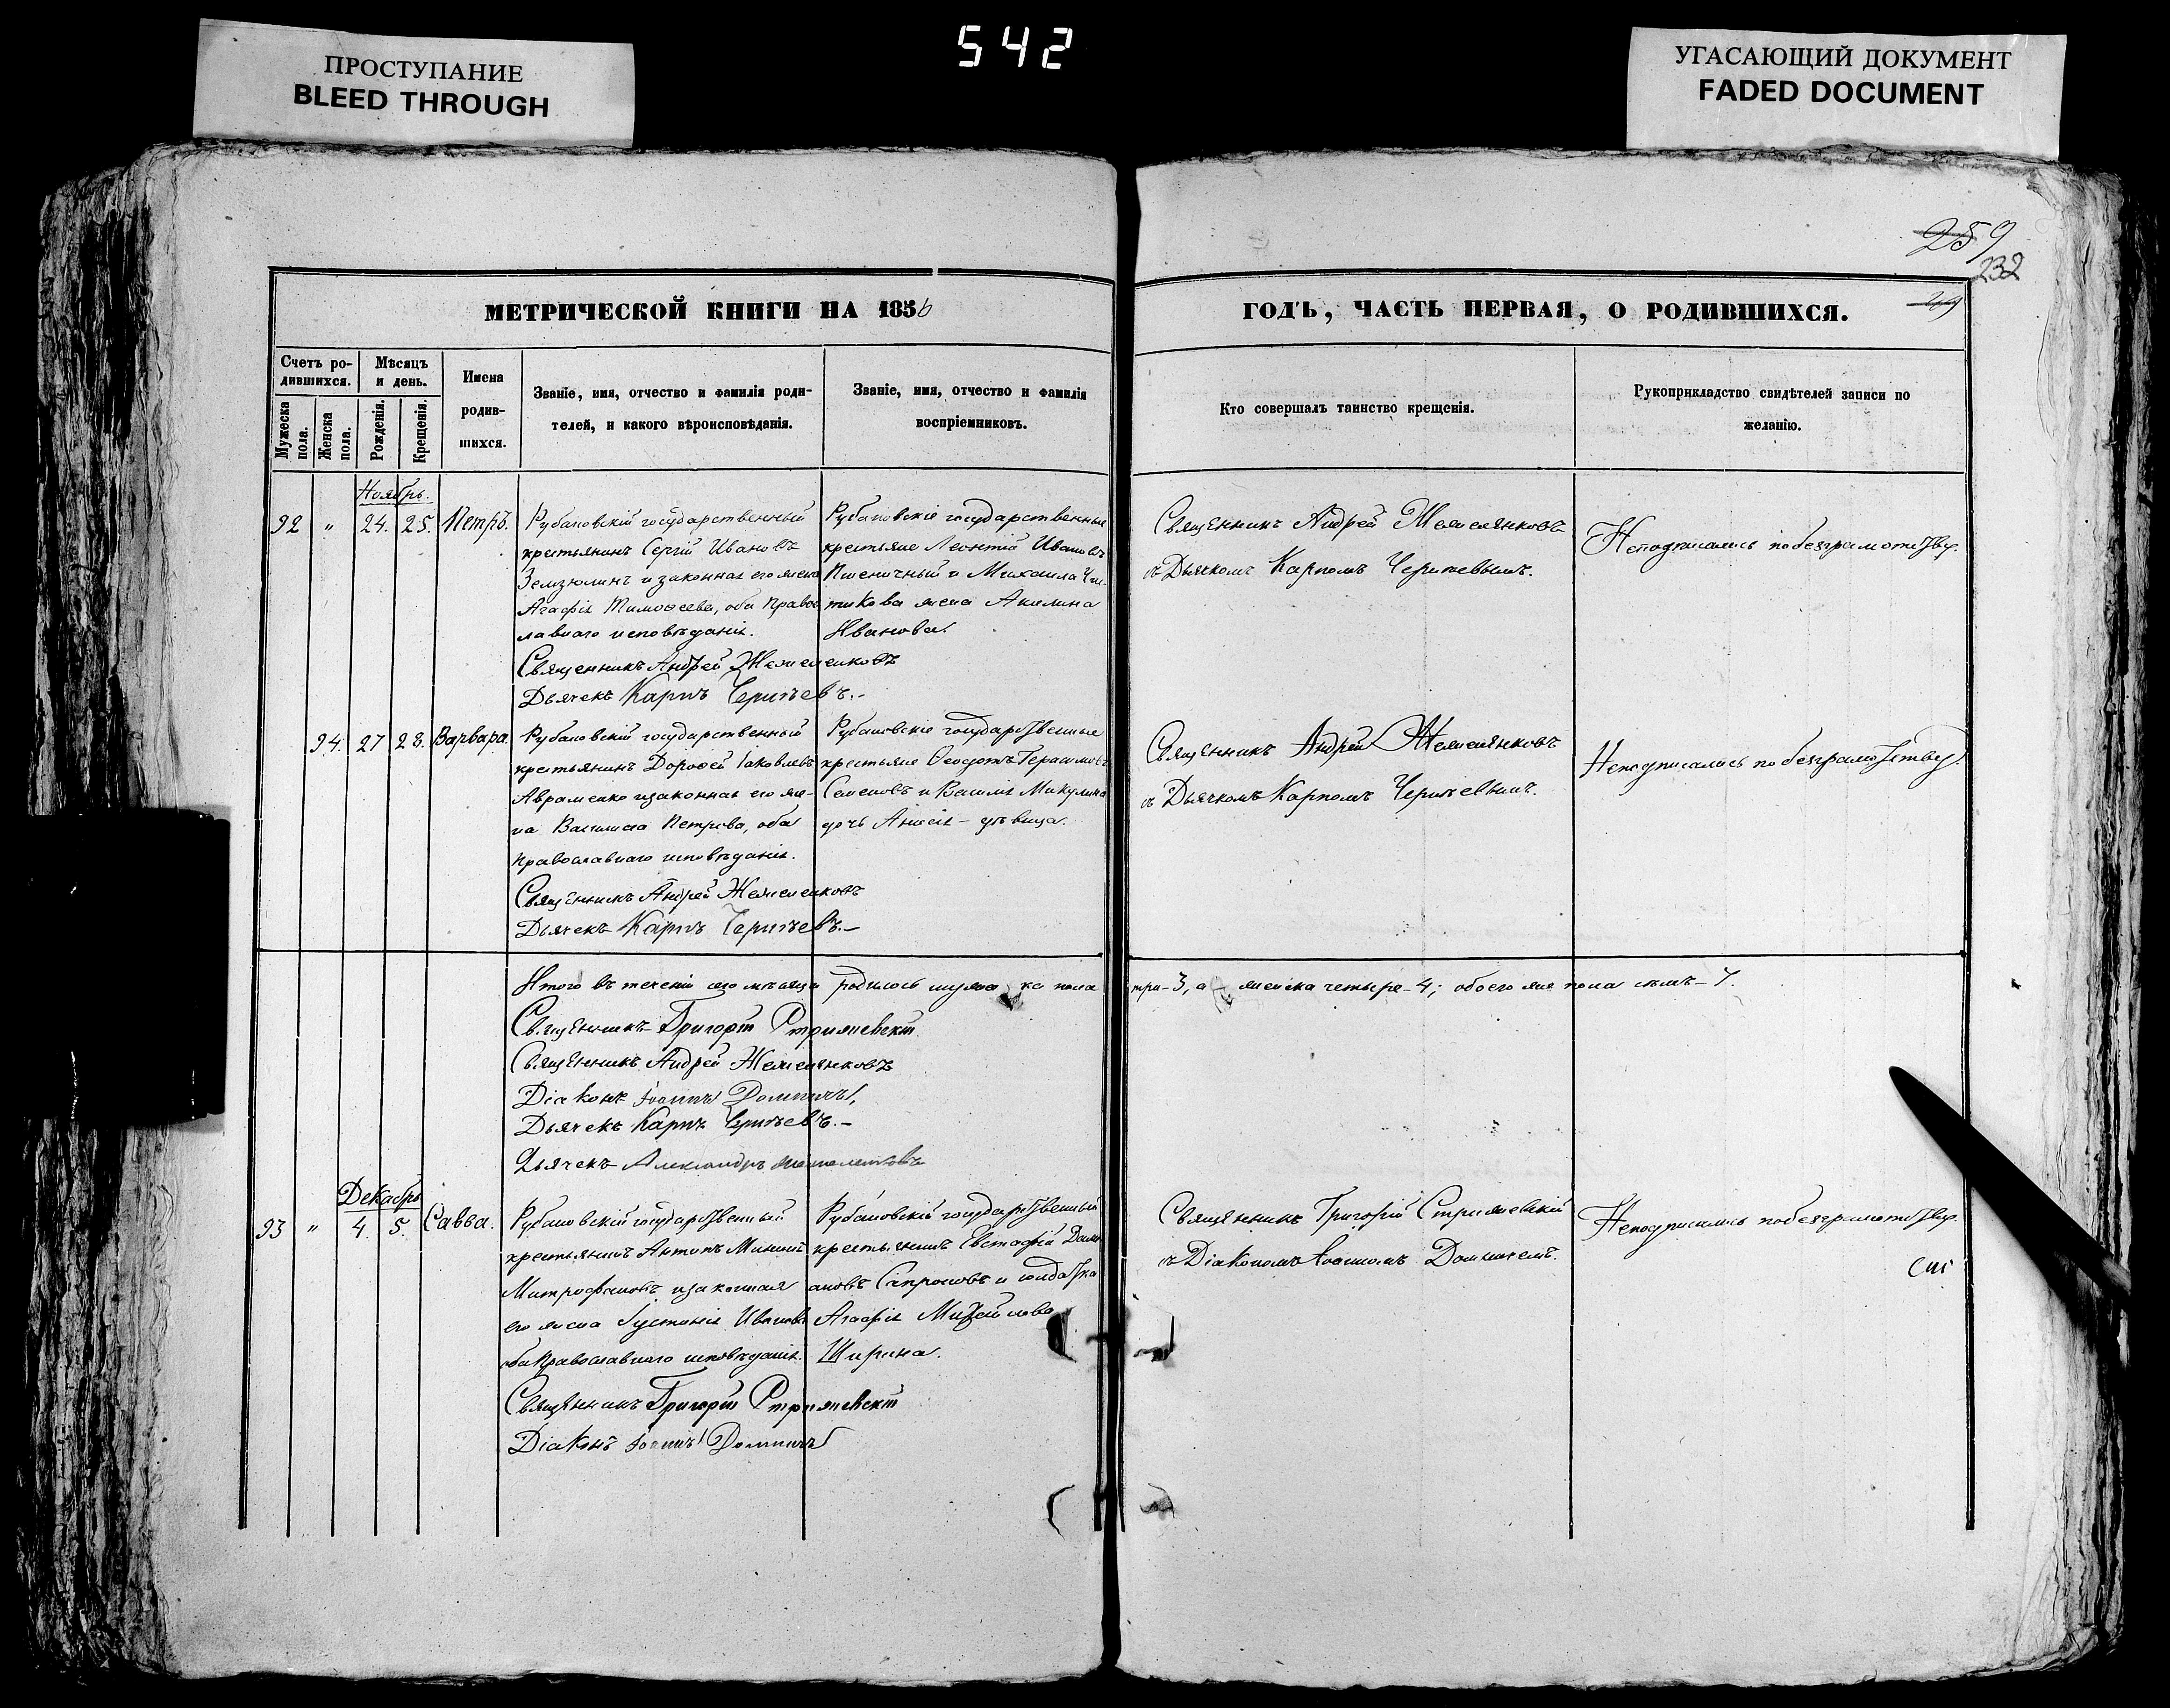 ПРОСТУПАНИЕ
BLEED THROUGH
542
УГАСАЮЩИЙ ДОКУМЕНТ
FADED DOCUMENT
259
232
МЕТРИЧЕСКОЙ КНИГИ НА 1856
ГОДЪ, ЧАСТЬ ПЕРВАЯ, О РОДИВШИХСЯ.
Счетъ ро-
дившихся.
Мѣсяцъ
и день.
Мужеска
пола.
Женска
пола.
Рожденія.
Крещенія.
Имена
родив-
шихся.
Званіе, имя, отчество и фамилія роди-
телей, и какого вѣроисповѣданія.
Званіе, имя, отчество и фамилія
воспріемниковъ.
Кто совершалъ таинство крещенія.
Рукоприкладство свидѣтелей записи по
желанію.
Ноябрь.
92 " 24. 25. Петръ.
Рубановскій государственный
крестьянинъ Сергій Ивановъ
и законная его жена
Агафія Тимофеева, оба право
славнаго исповѣданія.
Священникъ Андрей
Дьячекъ Карпъ
Рубановскіе государственные
крестьяне Леонтій Ивановъ
Пшеничный и Михаила
жена Акилина
Иванова.
Священникъ Андрей
съ Дьячкомъ Карпомъ
Неподписались по безграмотству.
94. 27 28. Варвара
Рубановскій государственный
крестьянинъ Дорофей Іаковлевъ
Авраменко и законная его же-
на Василиса Петрова, оба
православнаго исповѣданія.
Священникъ Андрей
Дьячекъ Карпъ
Рубановскіе государственные
крестьяне Феодотъ Герасимовъ
Семеновъ и Микулина
дочь Анисія – дѣвица.
Священникъ Андрей
съ Дьячкомъ Карпомъ
Неподписались по безграмотству.
Итого въ теченіи сего мѣсяца родилось мужеска пола три-3, а женска четыре-4; обоего же пола семь-7.
Священникъ Григорій Стрижевскій
Священникъ Андрей
Діаконъ Іоаннъ
Дьячекъ Карпъ
Дьячекъ Александръ
Декабрь
93 " 4. 5. Савва.
Рубановскій государственный
крестьянинъ Антонъ Мининъ
Митрофановъ и законная
его жена Іустинія Иванова
оба православнаго исповѣданія.
Священникъ Григорій Стрижевскій
Діаконъ Іоаннъ
Рубановскій государственный
крестьянинъ Евстафій Дами
ановъ Сапроновъ и солдатка
Агафія Михайлова
Ширина.
Священникъ Григорій Стрижевскій
съ Діакономъ Іоанномъ
Неподписались по безграмотству.